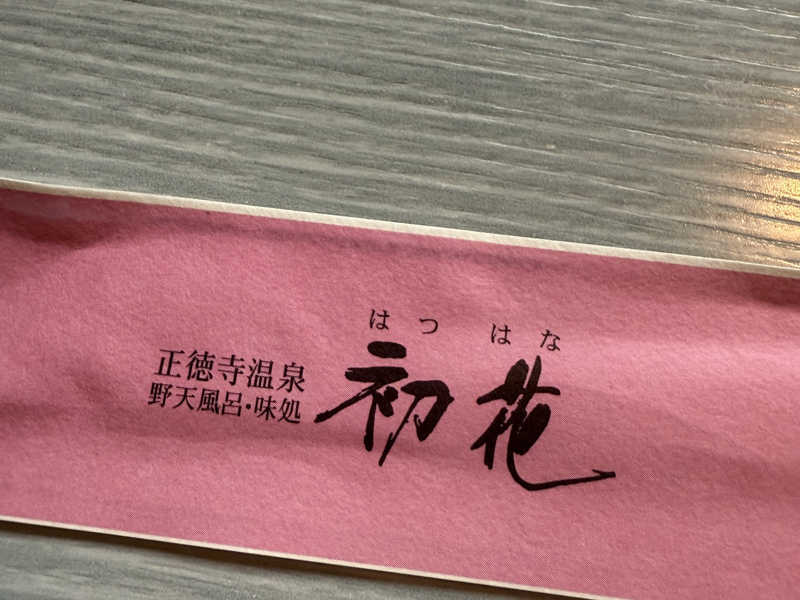 正徳寺温泉
野天風呂・味処
はつ はな
初花